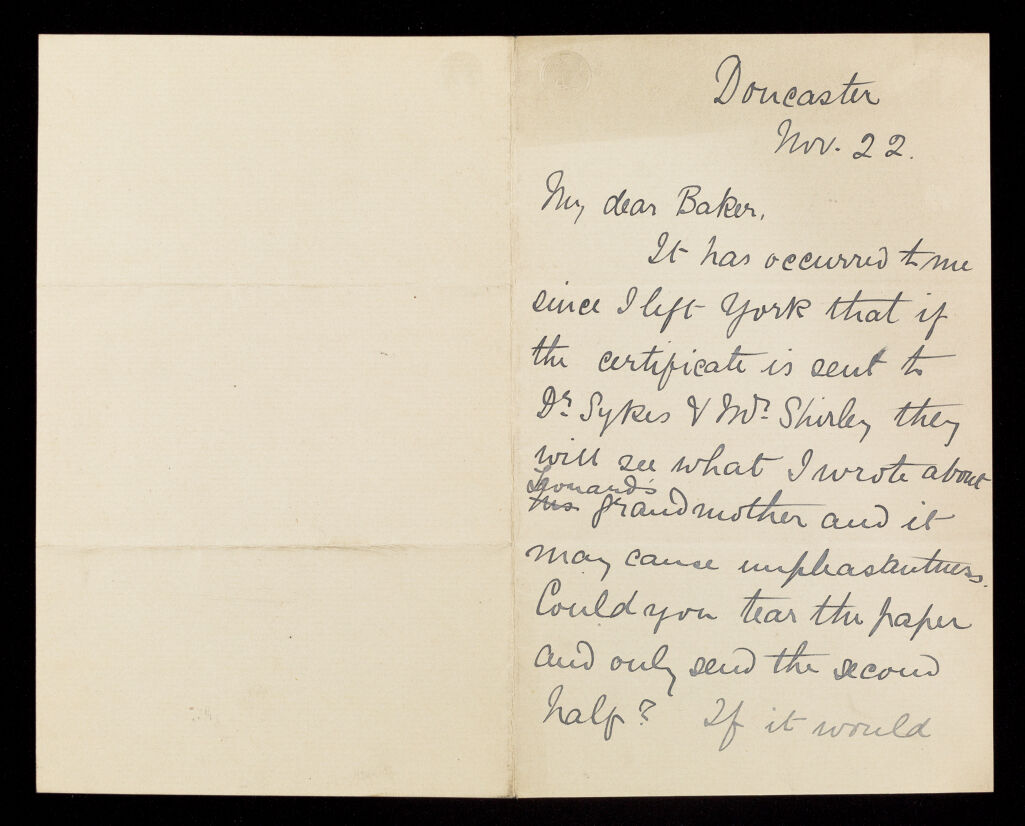 Doncaster
Nov. 22.
My dear Baker,
It has occurred to me
since I left York that if
the certificate is sent to
Dr. Sykes & Mr. Shirley they
will see what I wrote about
Leonard's
his grandmother and it
may cause unpleasantness.
Could you tear the paper
and only send the second
half? If it would